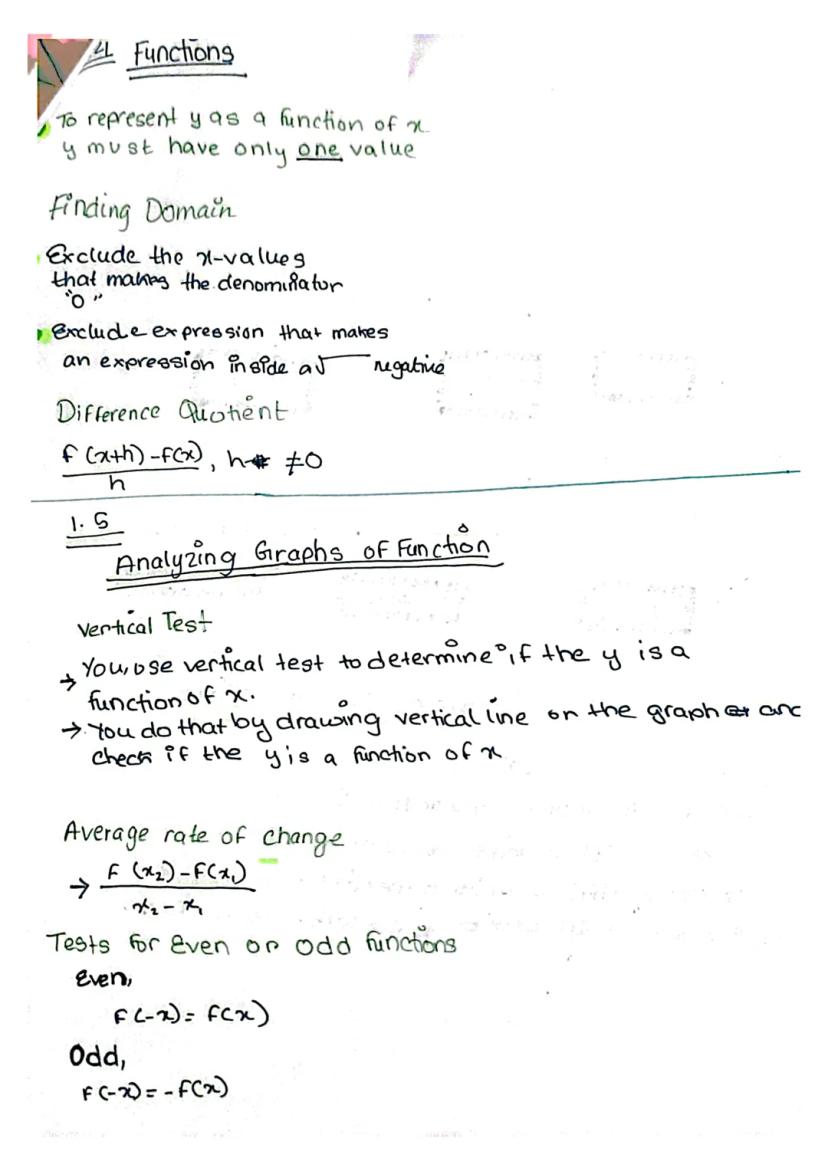 4 Functions
To represent y as a function of x
y must have only one value
Finding Domain
Exclude the x-values
that makes the denominator
"0"
Exclude expression that makes
an expression inside a √ negative
Difference Quotient
f(x+h)-f(x)
h
, h ≠0
1.5
Analyzing Graphs of Function
Vertical Test
→ You, use vertical test to determine, if the y is a
function of x.
→ You do that by drawing vertical line on the graph and
check if the y is a function of x
Average rate of change
→ F(x₂)-F(x₁)
x₂-x₁
Tests for Even or odd functions
Even,
F(-x)= F(x)
Odd,
F(-x)= -F(x)